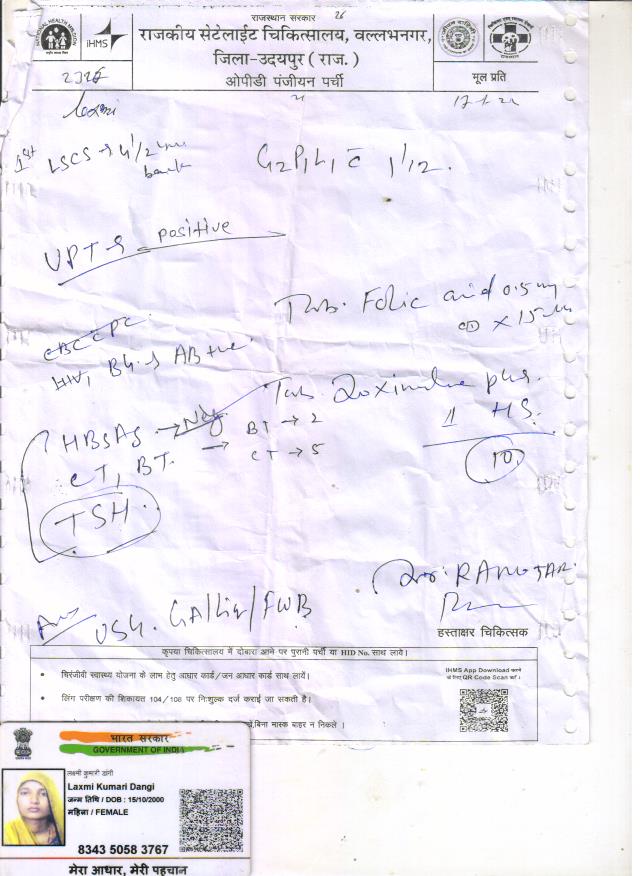 राजस्थान सरकार
26
राजकीय सेटेलाईट चिकित्सालय, वल्लभनगर,
जिला-उदयपुर ( राज. )
ओपीडी पंजीयन पर्ची
NATIONAL HEALTH MISSION
iHMS
मूल प्रति
1st LSCS → 4 1/2
back
G2P1L1 c̄ 1 1/12.
UPT → positive
Tab. Folic acid 0.5 mg
CBC CPC
HIV, BG → AB +ve.
HBSAG → Neg
BT → 2
CT, BT. → CT → 5
TSH
Tab. Doxinate plus.
II HS.
10
USG. GA/Liq/FWB
हस्ताक्षर चिकित्सक
कृपया चिकित्सालय में दोबारा आने पर पुरानी पर्ची या HID No. साथ लावे।
• चिरंजीवी स्वास्थ्य योजना के लाभ हेतु आधार कार्ड/जन आधार कार्ड साथ लायें।
• लिंग परीक्षण की शिकायत 104/108 पर निःशुल्क दर्ज कराई जा सकती है।
बिना मास्क बाहर न निकले ।
IHMS App Download करने
के लिए QR Code Scan करें ।
भारत सरकार
GOVERNMENT OF INDIA
लक्ष्मी कुमारी डांगी
Laxmi Kumari Dangi
जन्म तिथि / DOB : 15/10/2000
महिला / FEMALE
8343 5058 3767
मेरा आधार, मेरी पहचान